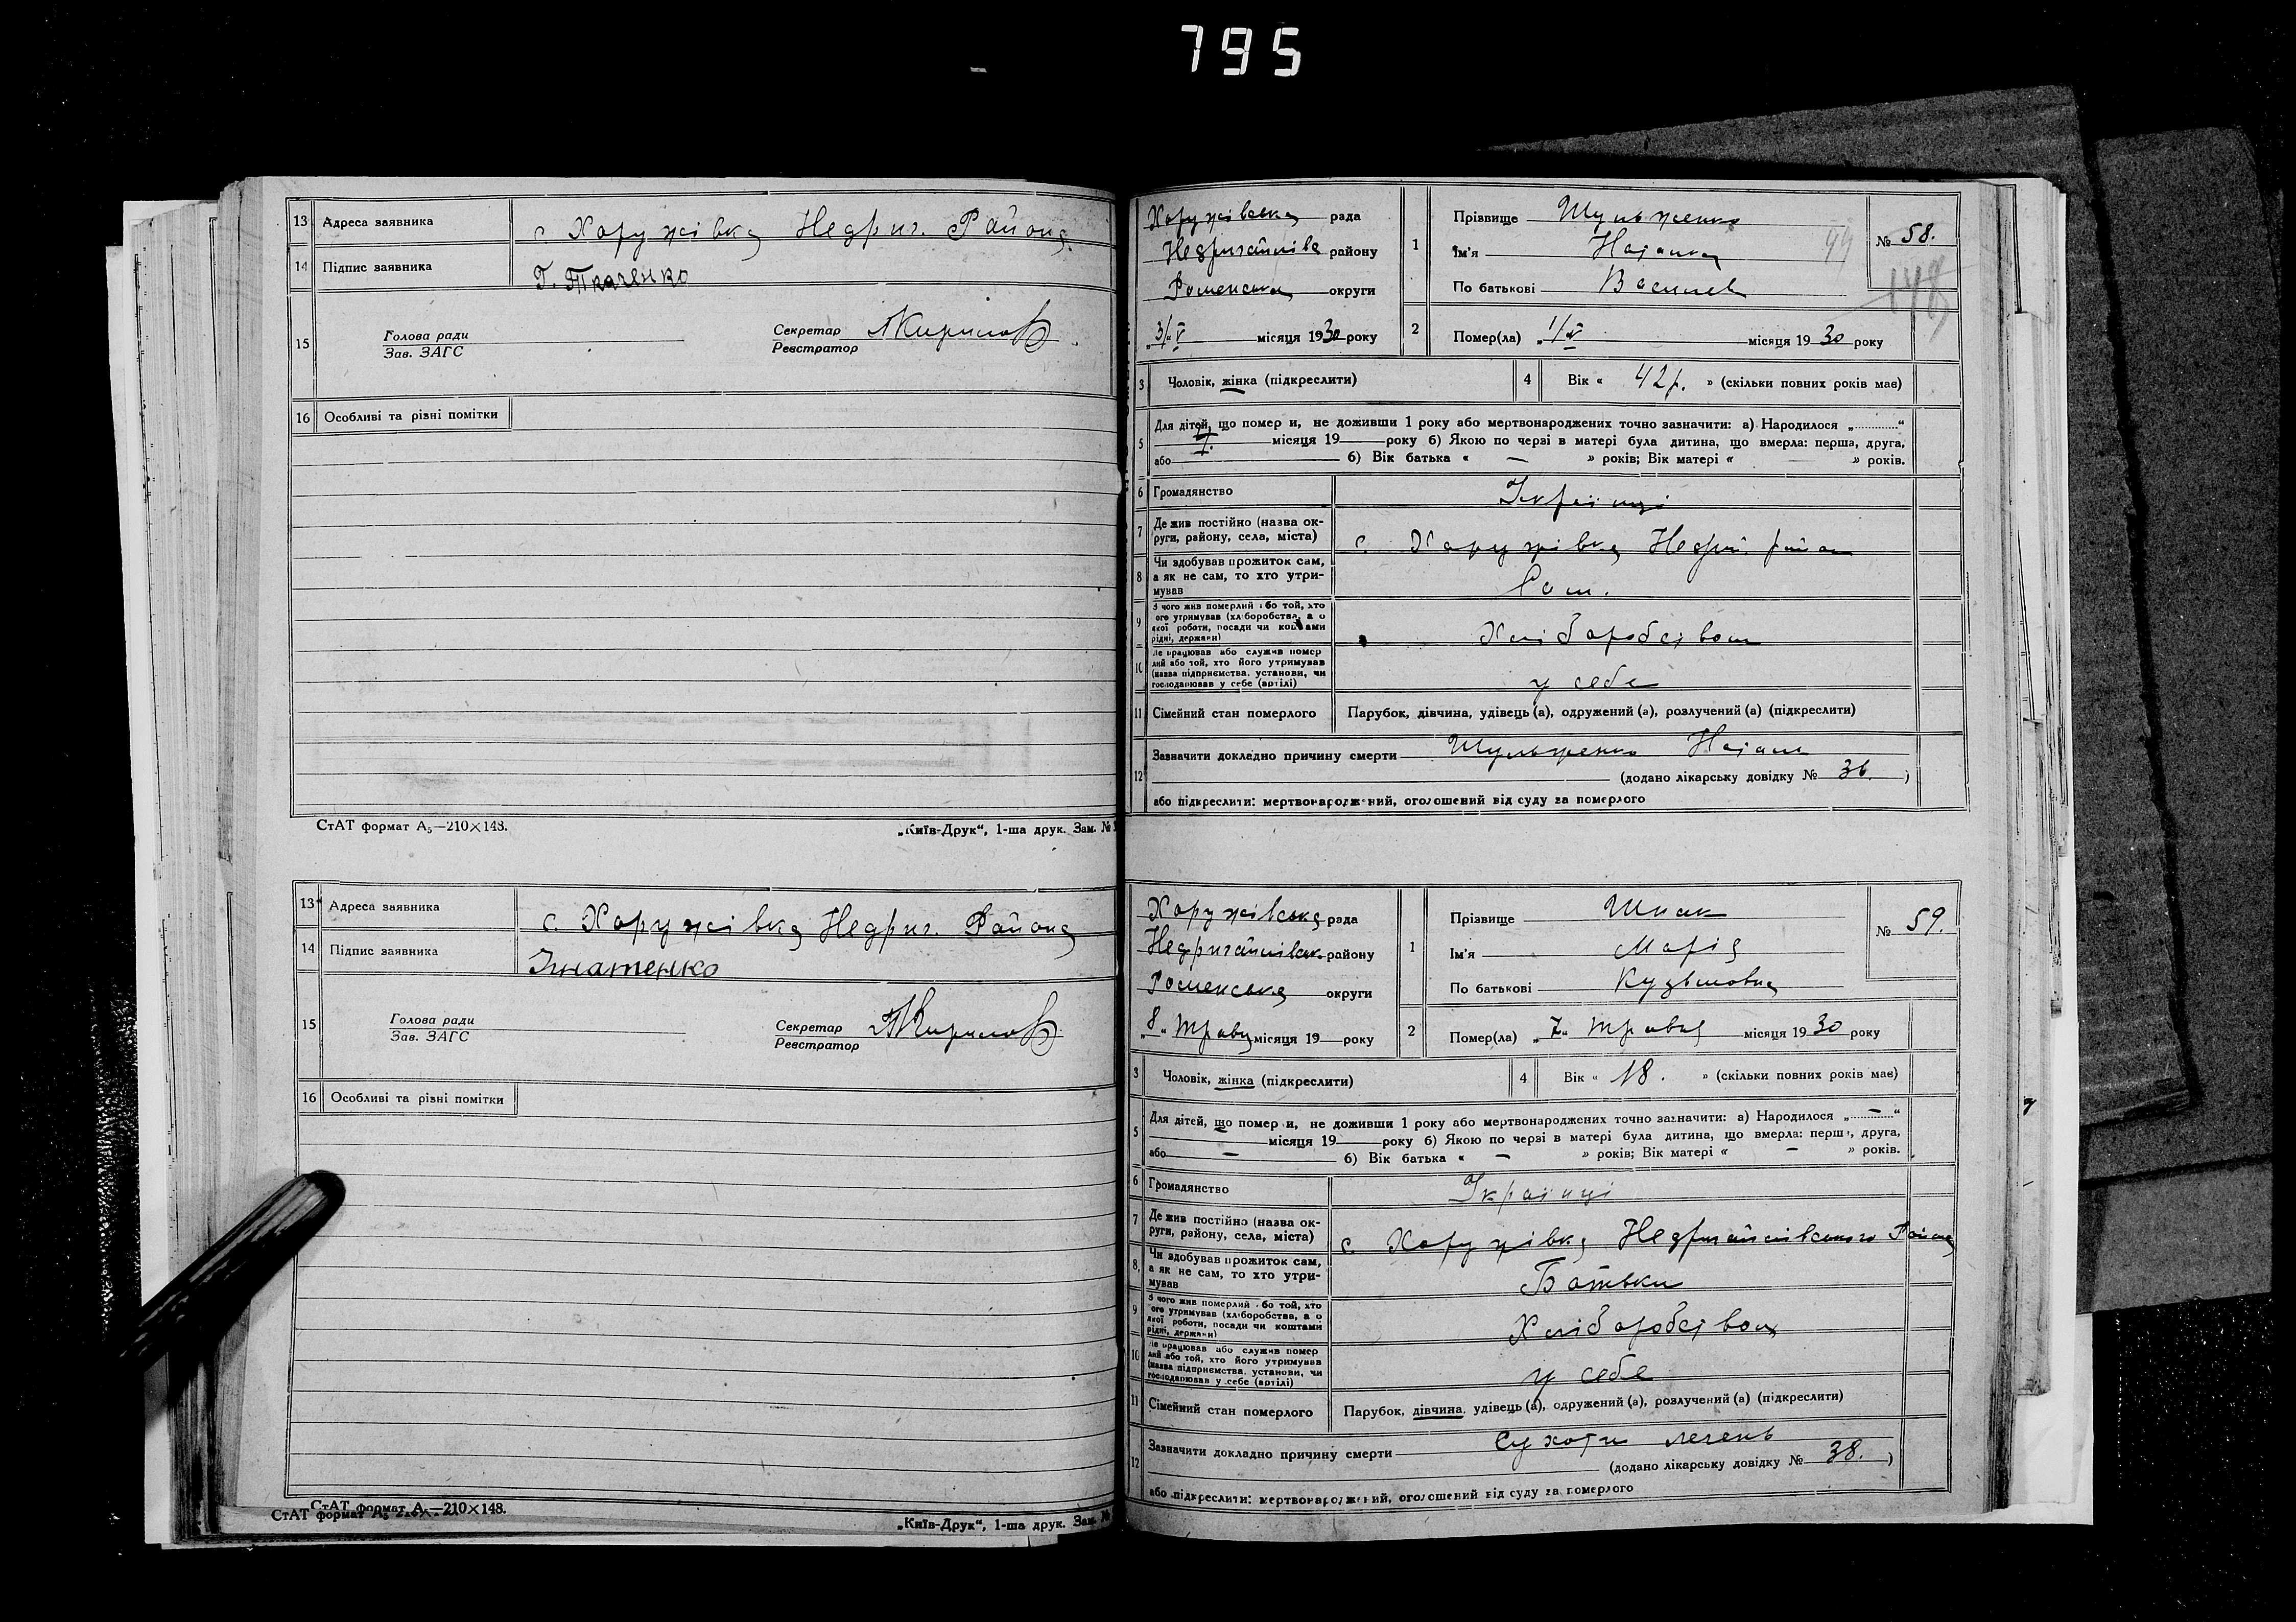 795
13 Адреса заявника с. Хоружівка Недриг. Району
14 Підпис заявника Г. Ткаченко
15 Голова ради Секретар
Зав. ЗАГС Реєстратор
16 Особливі та різні помітки
СтАТ формат А₅—210×148. „Київ-Друк“, 1-ша друк. Зам. №
13 Адреса заявника с. Хоружівка Недриг. Района
14 Підпис заявника Ігнатенко
15 Голова ради Секретар
Зав. ЗАГС Реєстратор
16 Особливі та різні помітки
СтАТ формат А₅—210×148.
СтАТ формат А₅ 210×148.
„Київ-Друк“, 1-ша друк. Зам. №
Хоружівська рада 1 Прізвище Шульженко № 58.
Недригайлівс району Ім'я 99
Роменська округи По батькові Василев 148
„3/„ V місяця 1930 року 2 Помер(ла) „1/V місяця 1930 року
3 Чоловік, жінка (підкреслити) 4 Вік « 42 р. » (скільки повних років має)
5 Для дітей, що помер и, не доживши 1 року або мертвонароджених точно зазначити: а) Народилося „ “
місяця 19 року б) Якою по черзі в матері була дитина, що вмерла: перша, друга,
або б) Вік батька « — » років; Вік матері « » років.
6 Громадянство Україці
7 Де жив постійно (назва ок-
руги, району, села, міста) с. Хоружівка Недриг. район
8 Чи здобував прожиток сам,
а як не сам, то хто утри-
мував Сам.
9 З чого жив померлий або той, хто
ого утримував (хліборобства, а о
якої роботи, посади чи коштами
рідні, держави) Хліборобством
10 Де працював або служив помер
лий або той, хто його утримував
(назва підприємства, установи, чи
господарював у себе (артілі) у себе
11 Сімейний стан померлого Парубок, дівчина, удівець (а), одружений (а), розлучений (а) (підкреслити)
12 Зазначити докладно причину смерти Шульженко
(додано лікарську довідку № 36. )
або підкреслити: мертвонароджений, оголошений від суду за померлого
Хоружівська рада 1 Прізвище Шпак № 59.
Недригайлівськ району Ім'я Марія
Роменська округи По батькові Кузьмовна
„8„ Травня місяця 19 року 2 Помер(ла) „7„ Травня місяця 1930 року
3 Чоловік, жінка (підкреслити) 4 Вік « 18. » (скільки повних років має)
5 Для дітей, що помер и, не доживши 1 року або мертвонароджених точно зазначити: а) Народилося „ — “
місяця 19 року б) Якою по черзі в матері була дитина, що вмерла: перша, друга,
або — б) Вік батька « — » років; Вік матері « — » років.
6 Громадянство Україці
7 Де жив постійно (назва ок-
руги, району, села, міста) с. Хоружівка Недригайлівського Района
8 Чи здобував прожиток сам,
а як не сам, то хто утри-
мував Батьки
9 З чого жив померлий або той, хто
ого утримував (хліборобства, а о
якої роботи, посади чи коштами
рідні, держави) Хліборобством
10 Де працював або служив помер
лий або той, хто його утримував
(назва підприємства, установи, чи
господарював у себе (артілі) у себе
11 Сімейний стан померлого Парубок, дівчина, удівець (а), одружений (а), розлучений (а) (підкреслити)
12 Зазначити докладно причину смерти Сухоти легень
(додано лікарську довідку № 38. )
або підкреслити: мертвонароджений, оголошений від суду за померлого